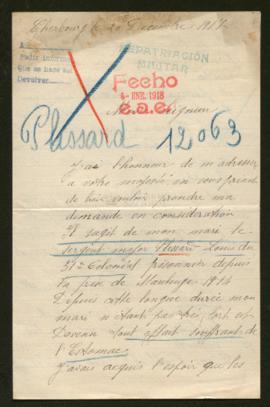 Cherbourg le 20 Décembre 1917
Pedir inform
que se hace sa
Devolver
REPATRIACIÓN
MILITAR
Fecho
4-ENE. 1918
e.a.e.
Plessard 12063
J'ai l'honneur de m'adresser
a votre majesté en vous priant
de bien vouloir prendre ma
demande en considération
sujet de mon mari le
sergent major Plessard Louis du
5e Colonial prisonnier depuis
la prise de Maubeuge 1914
Depuis cette longue durée mon
mari n'étant pas très fort est
Devenu tout affait souffrant de
l'Estomac
J'avais acquis l'espoir que les